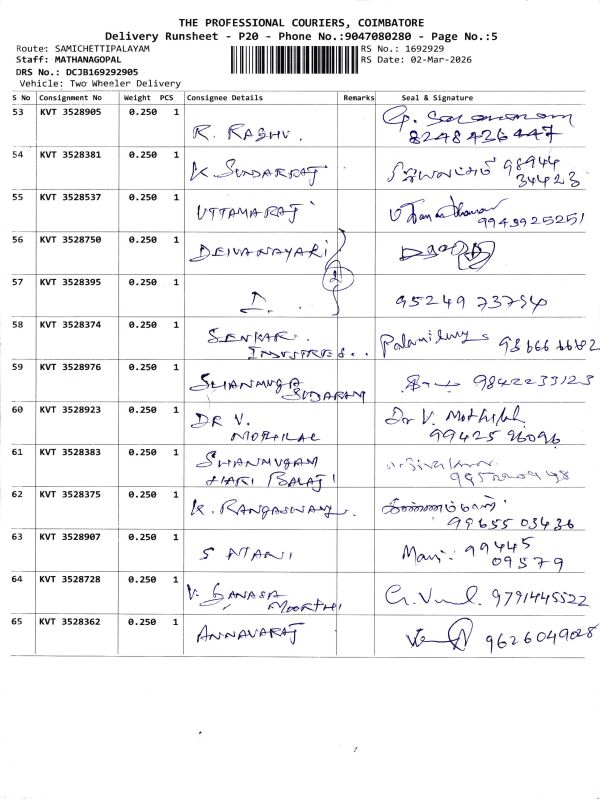 THE PROFESSIONAL COURIERS, COIMBATORE
Delivery Runsheet - P20 - Phone No.:9047080280 - Page No.:5
Route: SAMICHETTIPALAYAM RS No.: 1692929
Staff: MATHANAGOPAL RS Date: 02-Mar-2026
DRS No.: DCJB169292905
Vehicle: Two Wheeler Delivery
S No Consignment No Weight PCS Consignee Details Remarks Seal & Signature
53 KVT 3528905 0.250 1 R. RAGHU. 8248436447
54 KVT 3528381 0.250 1 K. SUNDARRAJ 98944
34423
55 KVT 3528537 0.250 1 UTTAMARAJ 9943925251
56 KVT 3528750 0.250 1 DEIVANAYARI 2
57 KVT 3528395 0.250 1 95249 73794
58 KVT 3528374 0.250 1 98666 66682
59 KVT 3528976 0.250 1 SHANMUGA
SUDARAM 9842233123
60 KVT 3528923 0.250 1 DR V. Dr V.
MOTHILAL 99425 96096
61 KVT 3528383 0.250 1 SHANMUGAM
HARI BALAJI
62 KVT 3528375 0.250 1 K. RANGASWAMY.
99655 03436
63 KVT 3528907 0.250 1 S MANI Mani. 99445
09579
64 KVT 3528728 0.250 1 V. GANASA
MOORTHI 9791445522
65 KVT 3528362 0.250 1 ANNAVARAJ 9626049028